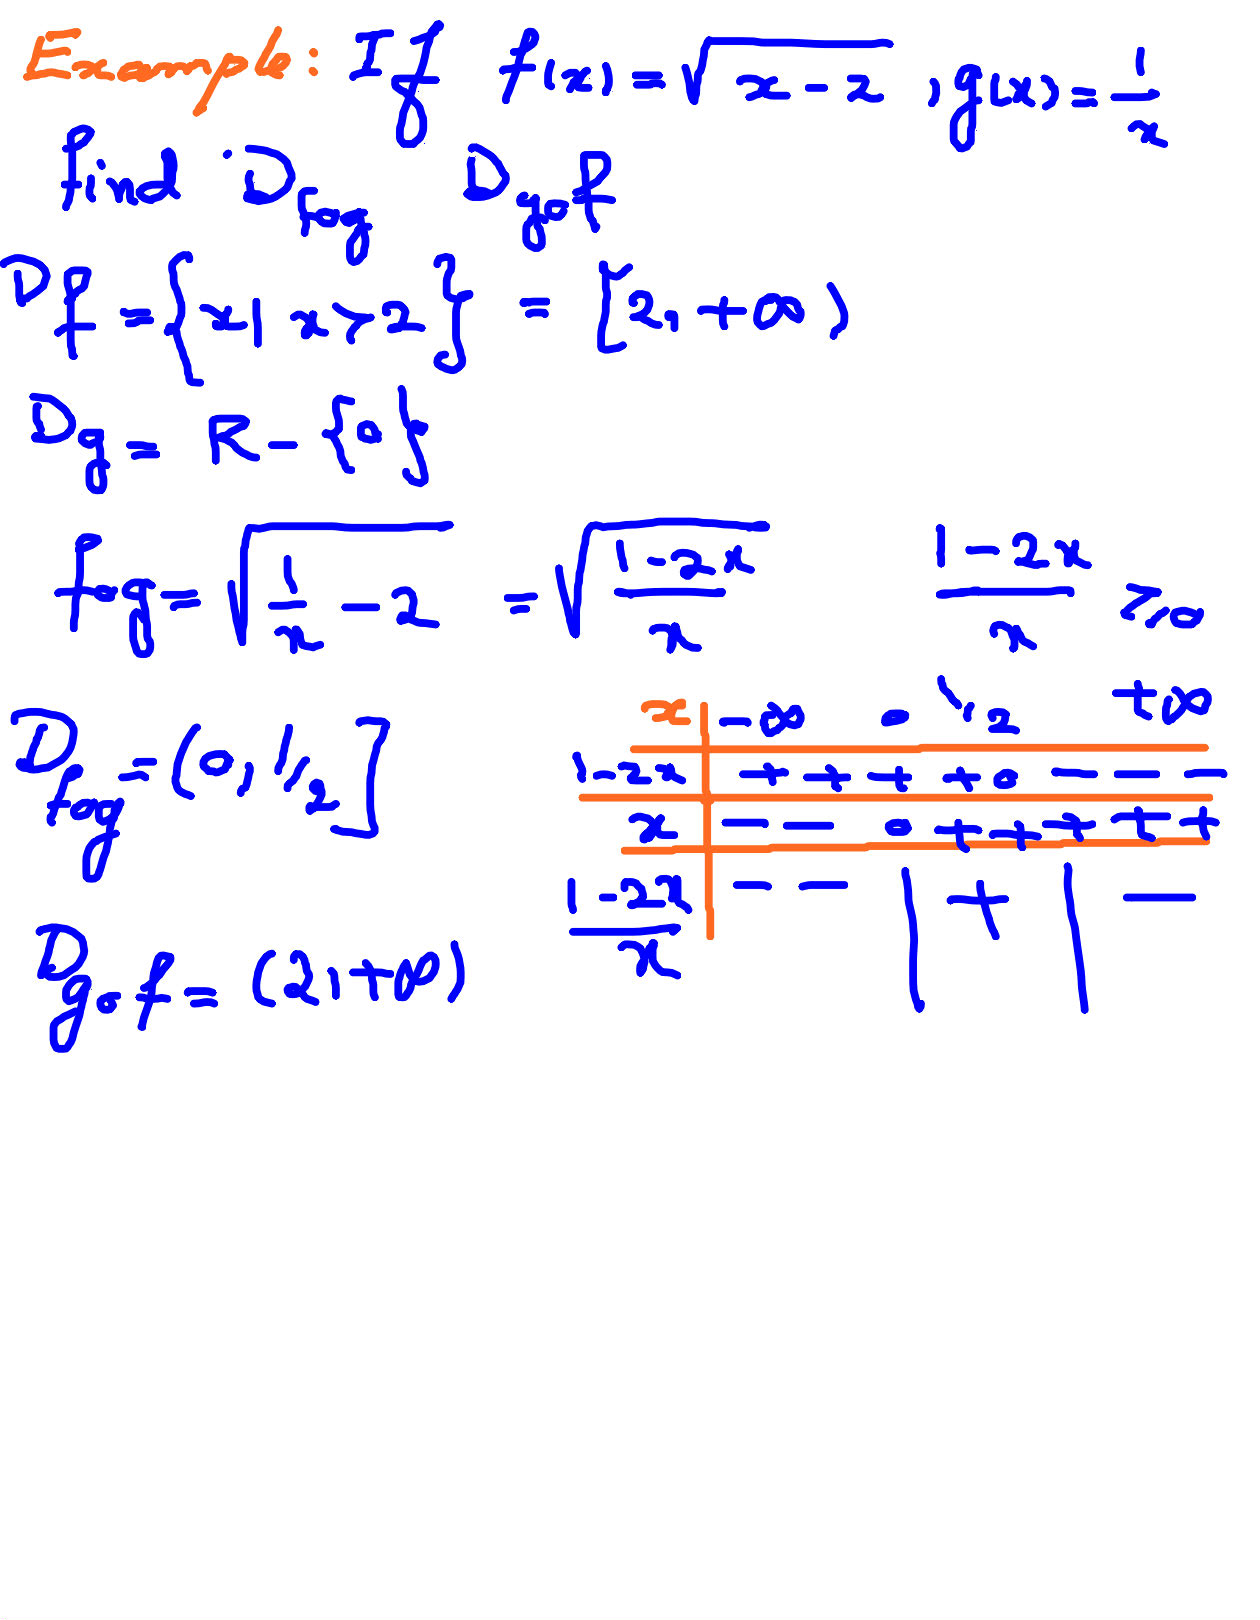 Example: If f(x) = √(x - 2) , g(x) = 1/x
find D_fog D_gof
D_f = {x | x > 2} = [2, +∞)
D_g = R - {0}
fog = √(1/x - 2) = √((1-2x)/x) (1-2x)/x ≥ 0
x | -∞ 0 1/2 +∞
D_fog = (0, 1/2]
1-2x | + + + + 0 - - -
x | - - 0 + + + + +
(1-2x)/x | - - | + | -
D_gof = (2, +∞)